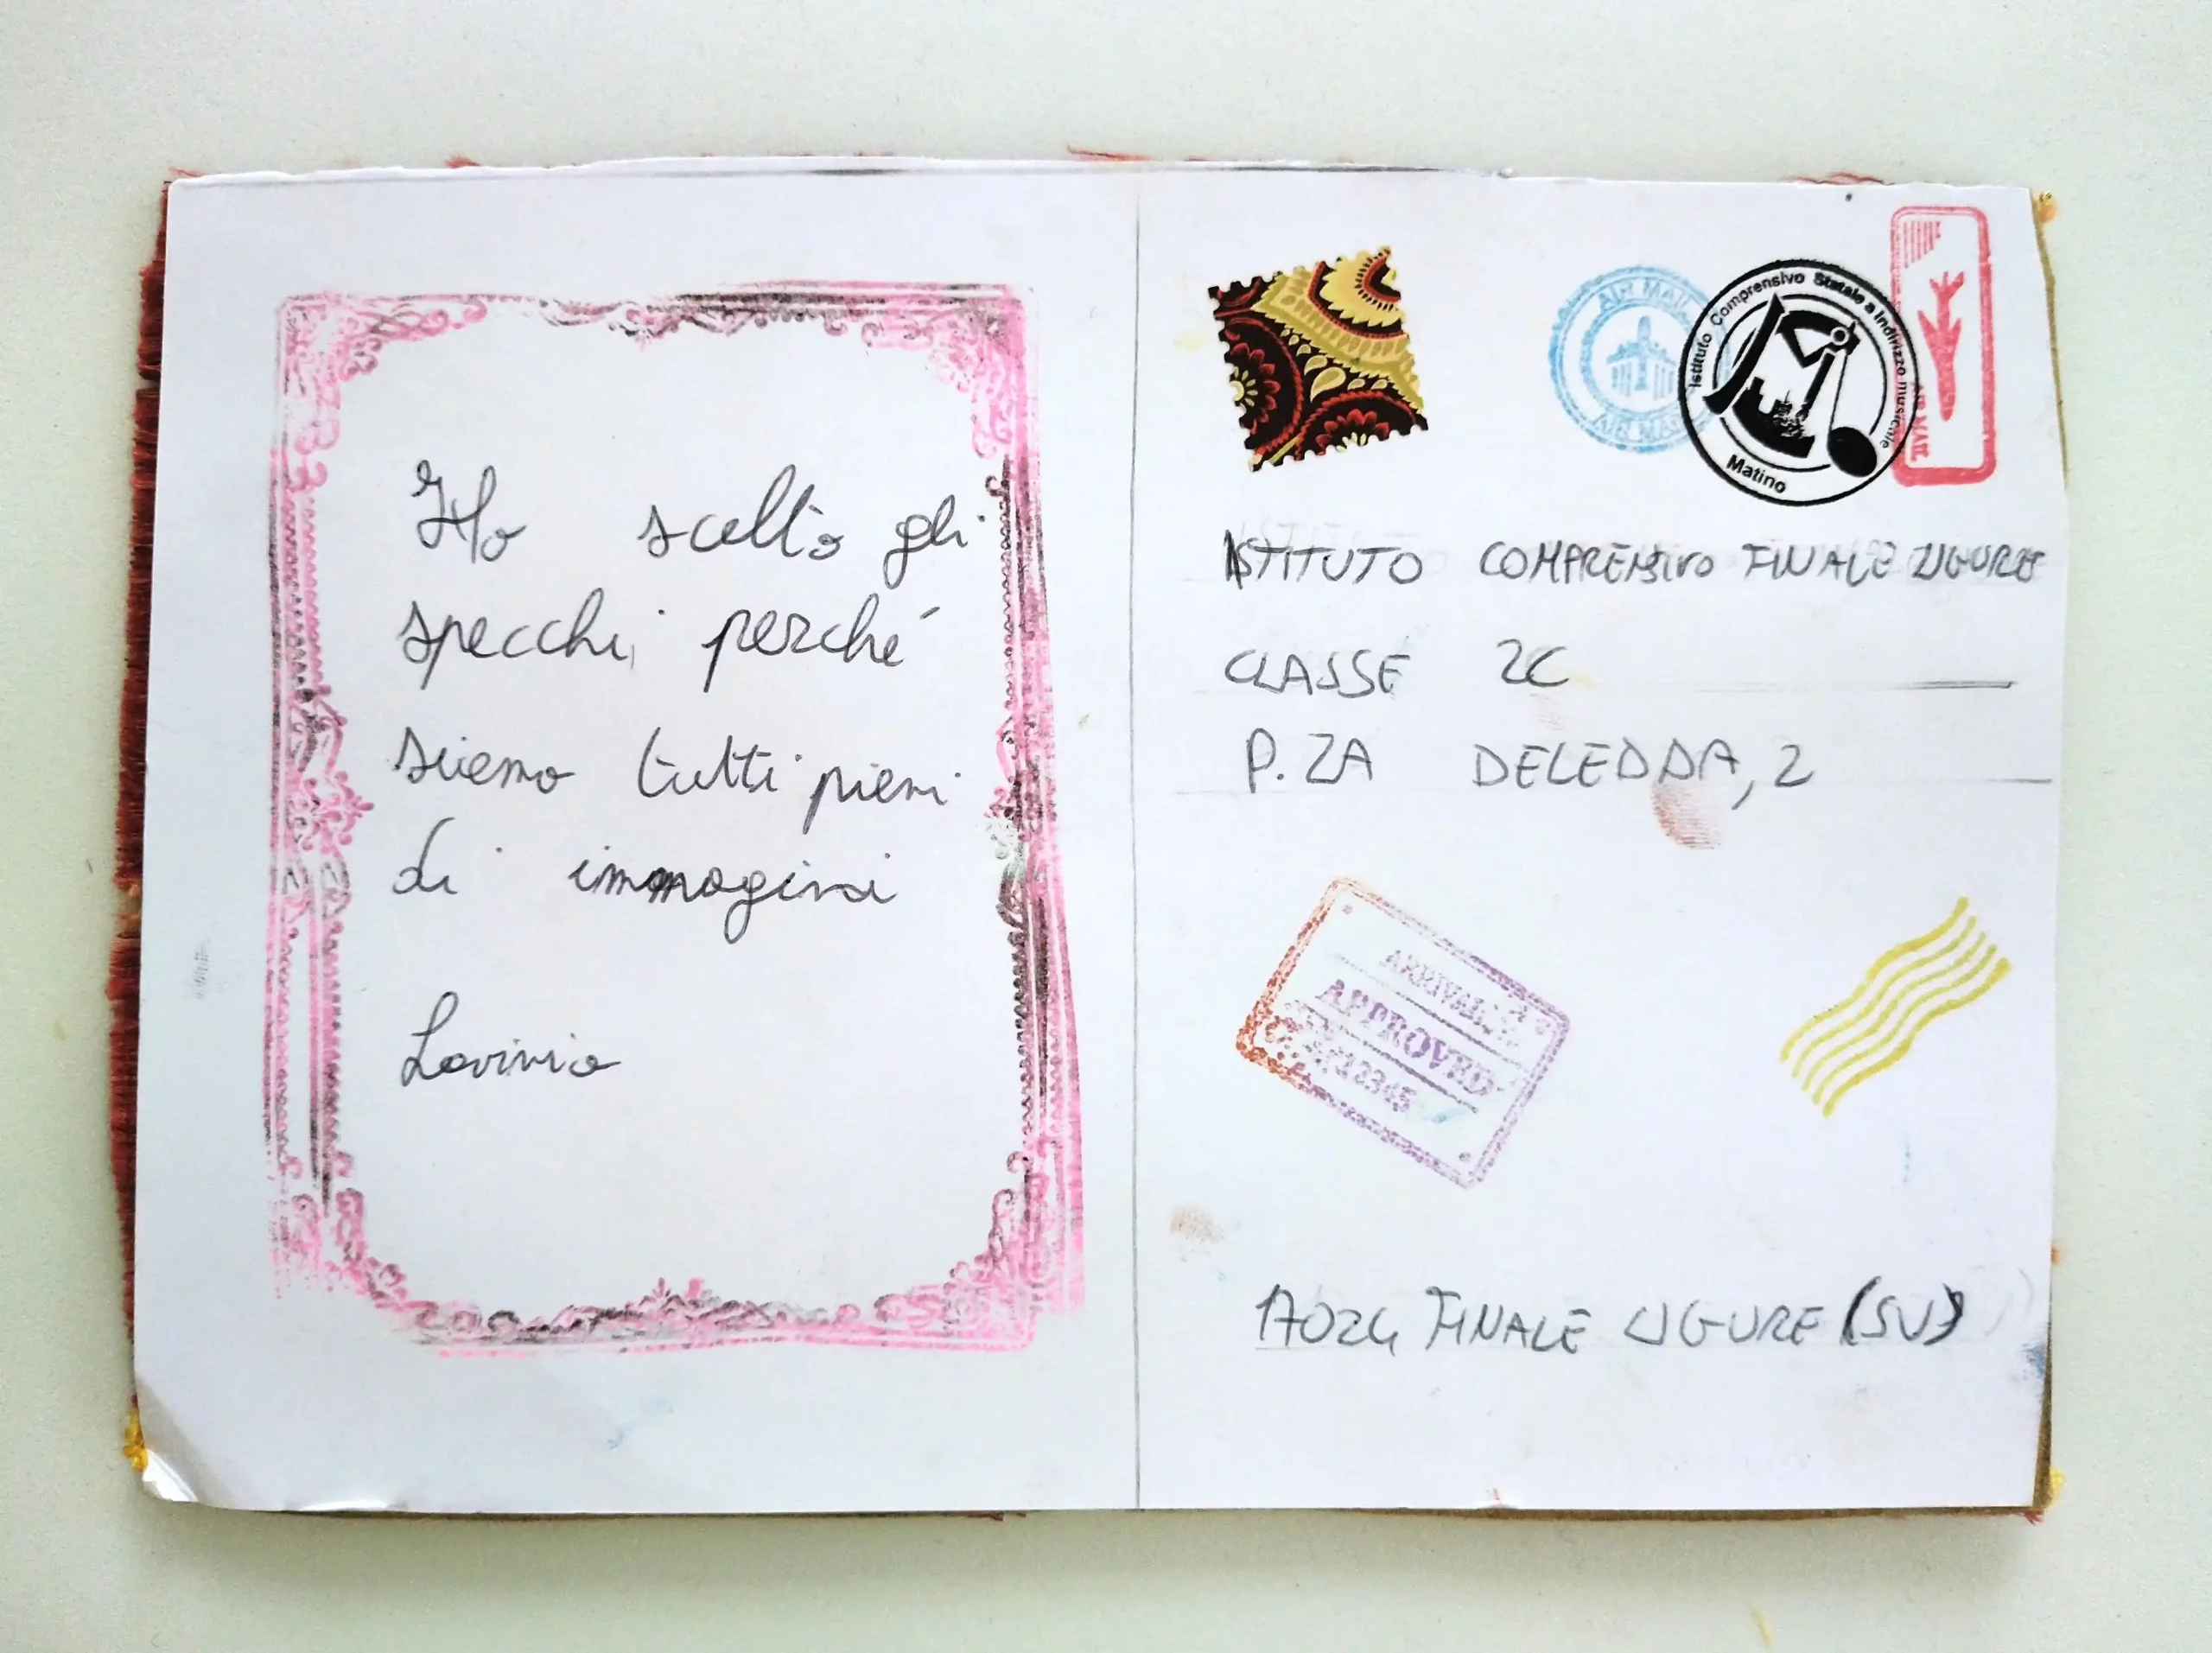 Ho scelto gli
specchi perché
siamo tutti pieni
di immagini
Lavinia
AIR MAIL
AIR MAIL
Istituto Comprensivo Statale a Indirizzo musicale
Matino
AIR MAIL
ISTITUTO COMPRENSIVO FINALE LIGURE
CLASSE 2C
P.ZA DELEDDA, 2
ARRIVAL
APPROVED
12345
17024 FINALE LIGURE (SV)